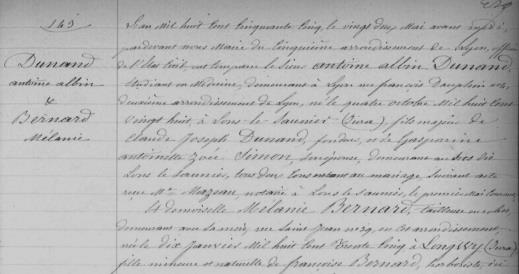 143
Dunand
antoine albin
&
Bernard
Mélanie
L'an Mil huit Cent Cinquante Cinq, le vingt deux Mai avant midi,
pardevant nous Maire du Cinquième arrondissement de Lyon, officier
de l'état Civil, ont comparu le Sieur antoine albin Dunand,
Étudiant en Médecine, demeurant à Lyon rue françois Dauphin
deuxième arrondissement de Lyon, né le quatre octobre Mil huit Cent
vingt huit, à Lons-le-Saunier (Jura) fils majeur de
Claude Joseph Dunand, fondeur, et de Gasparine
antoinette Zoée Simon, demeurant au dit
Lons le Saunier, tous deux Consentant au mariage, suivant acte
reçu Me Mazeau, notaire à Lons le Saunier, le premier Mai Courant
Et demoiselle Mélanie Bernard, tailleuse
demeurant avec Sa mère, rue Saint Jean n° 39, en ce arrondissement,
née le Dix Janvier Mil huit Cent trente Cinq à Longwy (Jura)
fille mineure et naturelle de françoise Bernard, herboriste,